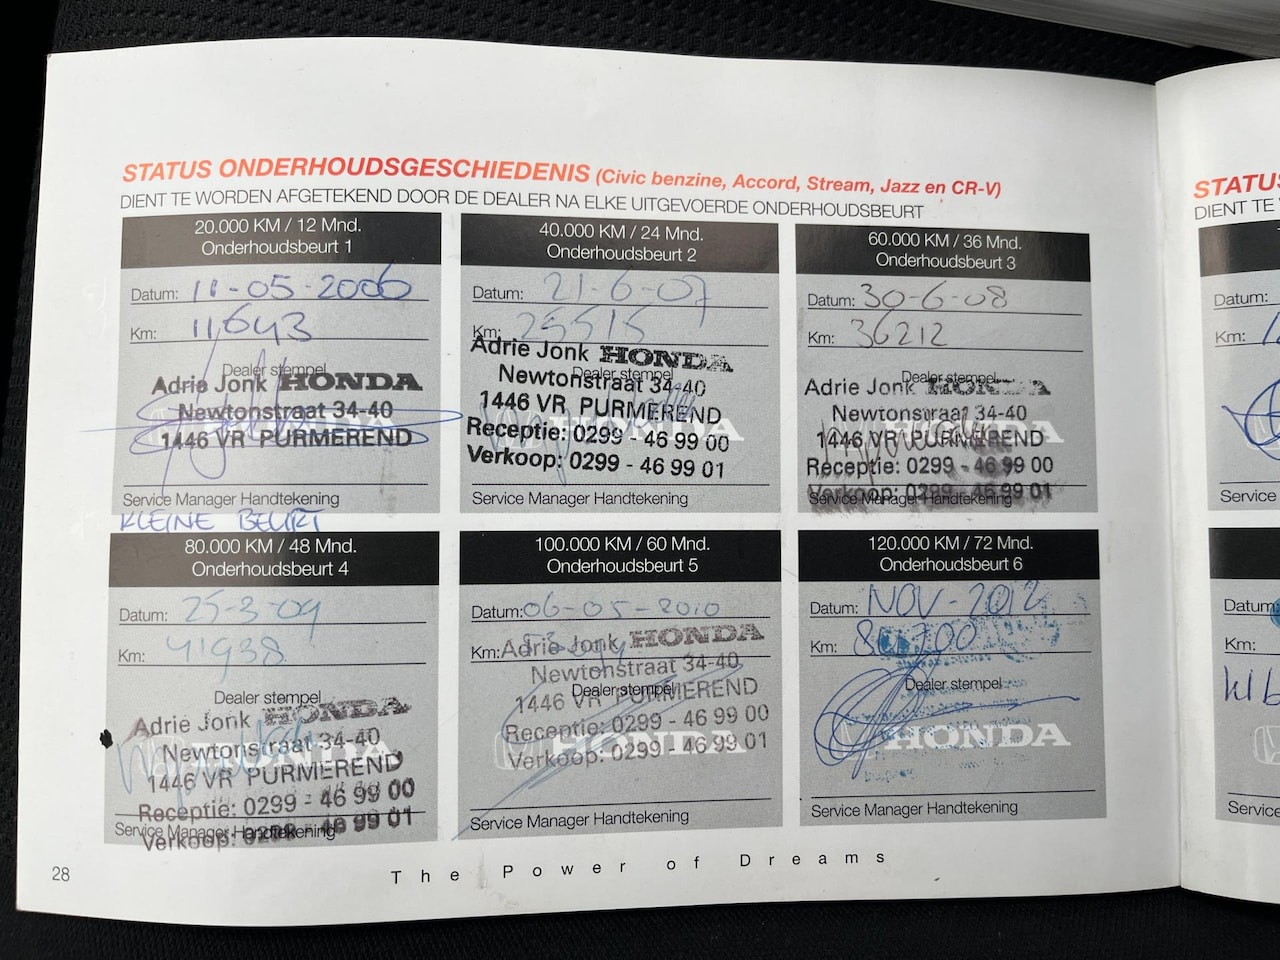 STATUS ONDERHOUDSGESCHIEDENIS (Civic benzine, Accord, Stream, Jazz en CR-V)
DIENT TE WORDEN AFGETEKEND DOOR DE DEALER NA ELKE UITGEVOERDE ONDERHOUDSBEURT
20.000 KM / 12 Mnd.
Onderhoudsbeurt 1
Datum: 11-05-2006
Km: 11643
Dealer stempel
Adrie Jonk HONDA
Newtonstraat 34-40
1446 VR PURMEREND
Service Manager Handtekening
KLEINE BEURT
40.000 KM / 24 Mnd.
Onderhoudsbeurt 2
Datum: 21-6-07
Km: 25515
Adrie Jonk HONDA
Dealer stempel
Newtonstraat 34-40
1446 VR PURMEREND
HONDA
Receptie: 0299 - 46 99 00
Verkoop: 0299 - 46 99 01
Service Manager Handtekening
60.000 KM / 36 Mnd.
Onderhoudsbeurt 3
Datum: 30-6-08
Km: 36212
Dealer stempel
Adrie Jonk HONDA
Newtonstraat 34-40
1446 VR PURMEREND
HONDA
Receptie: 0299 - 46 99 00
Verkoop: 0299 - 46 99 01
Service Manager Handtekening
80.000 KM / 48 Mnd.
Onderhoudsbeurt 4
Datum: 25-3-09
Km: 41938
Dealer stempel
Adrie Jonk HONDA
Newtonstraat 34-40
HONDA
1446 VR PURMEREND
Receptie: 0299 - 46 99 00
Service Manager Handtekening
Verkoop: 0299 - 46 99 01
100.000 KM / 60 Mnd.
Onderhoudsbeurt 5
Datum: 06-05-2010
Km:
Adrie Jonk HONDA
Newtonstraat 34-40
Dealer stempel
1446 VR PURMEREND
Receptie: 0299 - 46 99 00
HONDA
Verkoop: 0299 - 46 99 01
Service Manager Handtekening
120.000 KM / 72 Mnd.
Onderhoudsbeurt 6
Datum: NOV-2012
Km:
Dealer stempel
HONDA
Service Manager Handtekening
28
The Power of Dreams
STATUS
DIENT TE
Datum:
Km:
Service
Datum
Km:
Service